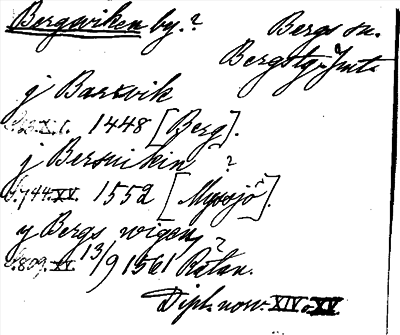 Bergwiken by.? Bergs sn.
Bergs tg. Jmt.
j Barxvik
1448 [Berg].
j Bersuikin ?
s. 744. XV. 1552 [Myssjö].
y Bergs wigen, ?
s. 809. XV. 13/9 1561 Rätan.
Dipl. norv. XIV o. XV.